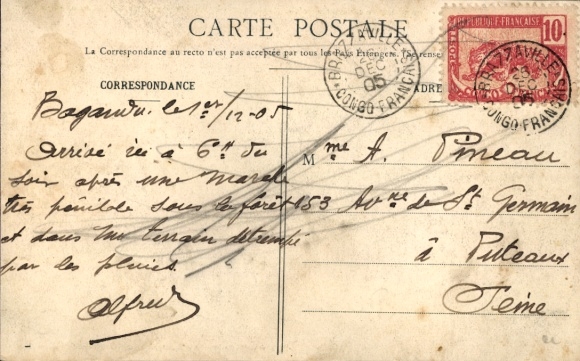 CARTE POSTALE
La Correspondance au recto n'est pas acceptée par tous les Pays Étrangers. (Se rense
CORRESPONDANCE
ADRE
RÉPUBLIQUE FRANÇAISE
10
POSTES
BRAZZAVILLE
DEC
05
CONGO FRANÇAIS
BRAZZAVILLE
DEC
05
CONGO FRANÇAIS
le 1er/12-05
Arrivé ici à 6h du
soir après une marche
très pénible sous la forêt
et dans un terrain détrempé
par les pluies.
Alfred
Mme A. Pineau
153 Avne de St Germain
à Puteaux
Seine